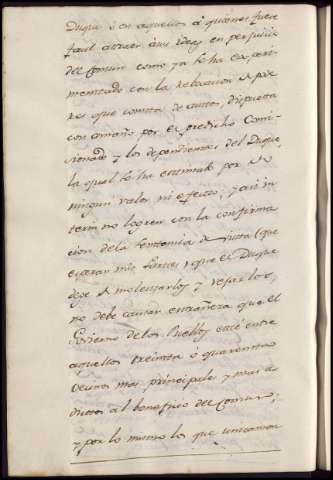 Duque ò en aquellos à quienes fuere
facil atraer à sus ideas en perjuicio
del Comun como ya se ha experi
mentado con la relacion de pa
res que consta de autos, dispuesta
con amaño por el predicho Comi-
sionado y los dependientes del Duque
la qual se ha estimado por de
ningun valor ni efecto, y asi in
terin no logren con la confirma
cion de la sentencia de vista (que
esperan mis Partes) que el Duque
deje de molestarlos y vejarlos,
no debe causar estrañeza que el
Govierno de los Pueblos esté entre
aquellos treinta ò quarenta
vecinos mas principales y mas a
dictos al beneficio del Comun;
y por lo mismo los que